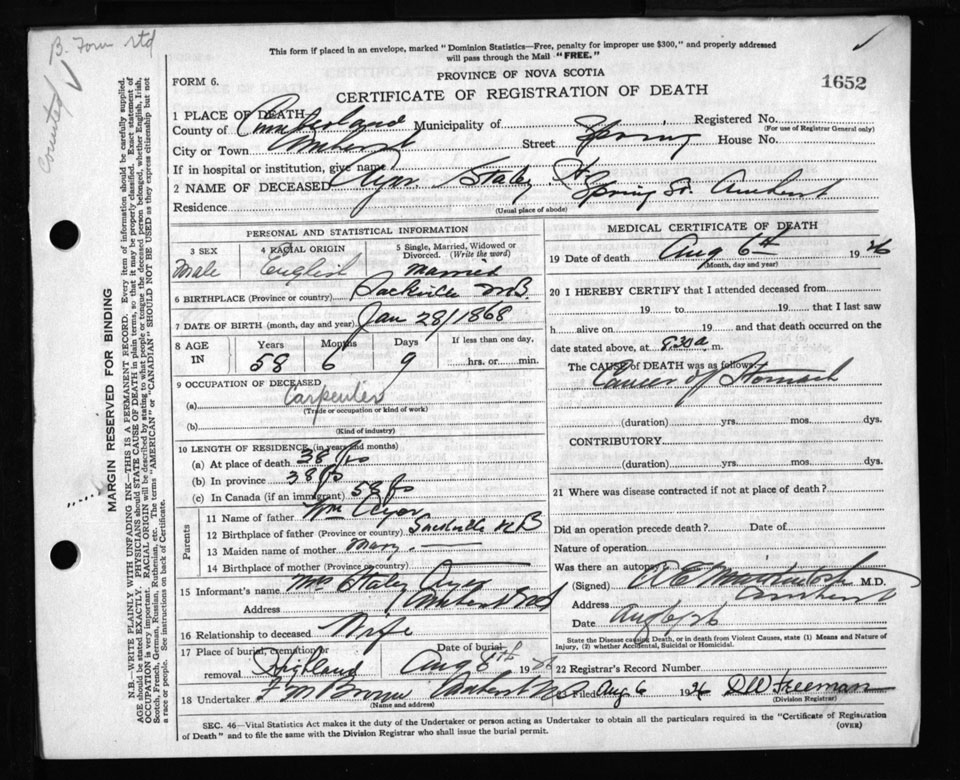 B. Form rtd
Counted
This form if placed in an envelope, marked "Dominion Statistics—Free, penalty for improper use $300," and properly addressed
will pass through the Mail "FREE."
FORM 6.
PROVINCE OF NOVA SCOTIA
CERTIFICATE OF REGISTRATION OF DEATH
1652
1 PLACE OF DEATH
County of Cumberland Municipality of Registered No.
(For use of Registrar General only)
City or Town Amherst Street Spring House No.
If in hospital or institution, give name
2 NAME OF DECEASED Ayer Staley H
Residence Spring St. Amherst
(Usual place of abode)
PERSONAL AND STATISTICAL INFORMATION
3 SEX 4 RACIAL ORIGIN 5 Single, Married, Widowed or Divorced. (Write the word)
Male English Married
6 BIRTHPLACE (Province or country) Sackville N.B.
7 DATE OF BIRTH (month, day and year) Jan 28/1868
8 AGE IN Years Months Days If less than one day,
58 6 9 hrs. or min.
9 OCCUPATION OF DECEASED
(a) Carpenter
(Trade or occupation or kind of work)
(b)
(Kind of industry)
10 LENGTH OF RESIDENCE (in years and months)
(a) At place of death 38 yrs
(b) In province 38 yrs
(c) In Canada (if an immigrant) 58 yrs
Parents
11 Name of father Wm Ayer
12 Birthplace of father (Province or country) Sackville N B
13 Maiden name of mother Mary —
14 Birthplace of mother (Province or country)
15 Informant's name Mrs Staley Ayer
Address Amherst N S
16 Relationship to deceased Wife
17 Place of burial, cremation or removal Highland Date of burial Aug 8th 1926
18 Undertaker F M Brown Amherst N S
(Name and address)
MEDICAL CERTIFICATE OF DEATH
19 Date of death Aug 6th 1926
(Month, day and year)
20 I HEREBY CERTIFY that I attended deceased from
19 to 19 that I last saw
h alive on 19 and that death occurred on the
date stated above, at 9.30 a. m.
The CAUSE of DEATH was as follows:
Cancer of Stomach
(duration) yrs. mos. dys.
CONTRIBUTORY
(duration) yrs. mos. dys.
21 Where was disease contracted if not at place of death?
Did an operation precede death? Date of
Nature of operation
Was there an autopsy
(Signed) M.D.
Address Amherst
Date Aug 6/26
State the Disease causing Death, or in death from Violent Causes, state (1) Means and Nature of
Injury, (2) whether Accidental, Suicidal or Homicidal.
22 Registrar's Record Number
Filed Aug 6 1926 D W Freeman
(Division Registrar)
SEC. 46—Vital Statistics Act makes it the duty of the Undertaker or person acting as Undertaker to obtain all the particulars required in the "Certificate of Registration
of Death" and to file the same with the Division Registrar who shall issue the burial permit. (OVER)
MARGIN RESERVED FOR BINDING
N.B.—WRITE PLAINLY WITH UNFADING INK—THIS IS A PERMANENT RECORD. Every item of information should be carefully supplied.
AGE should be stated EXACTLY. PHYSICIANS should STATE CAUSE OF DEATH in plain terms, so that it may be properly classified. Exact statement of
OCCUPATION is very important. RACIAL ORIGIN will be described by stating to what people or tongue the deceased person belonged, whether English, Irish,
Scotch, French, German, Russian, Ruthenian, etc. The terms "AMERICAN" or "CANADIAN" SHOULD NOT BE USED as they express citizenship but not
a race or people. See instructions on back of Certificate.